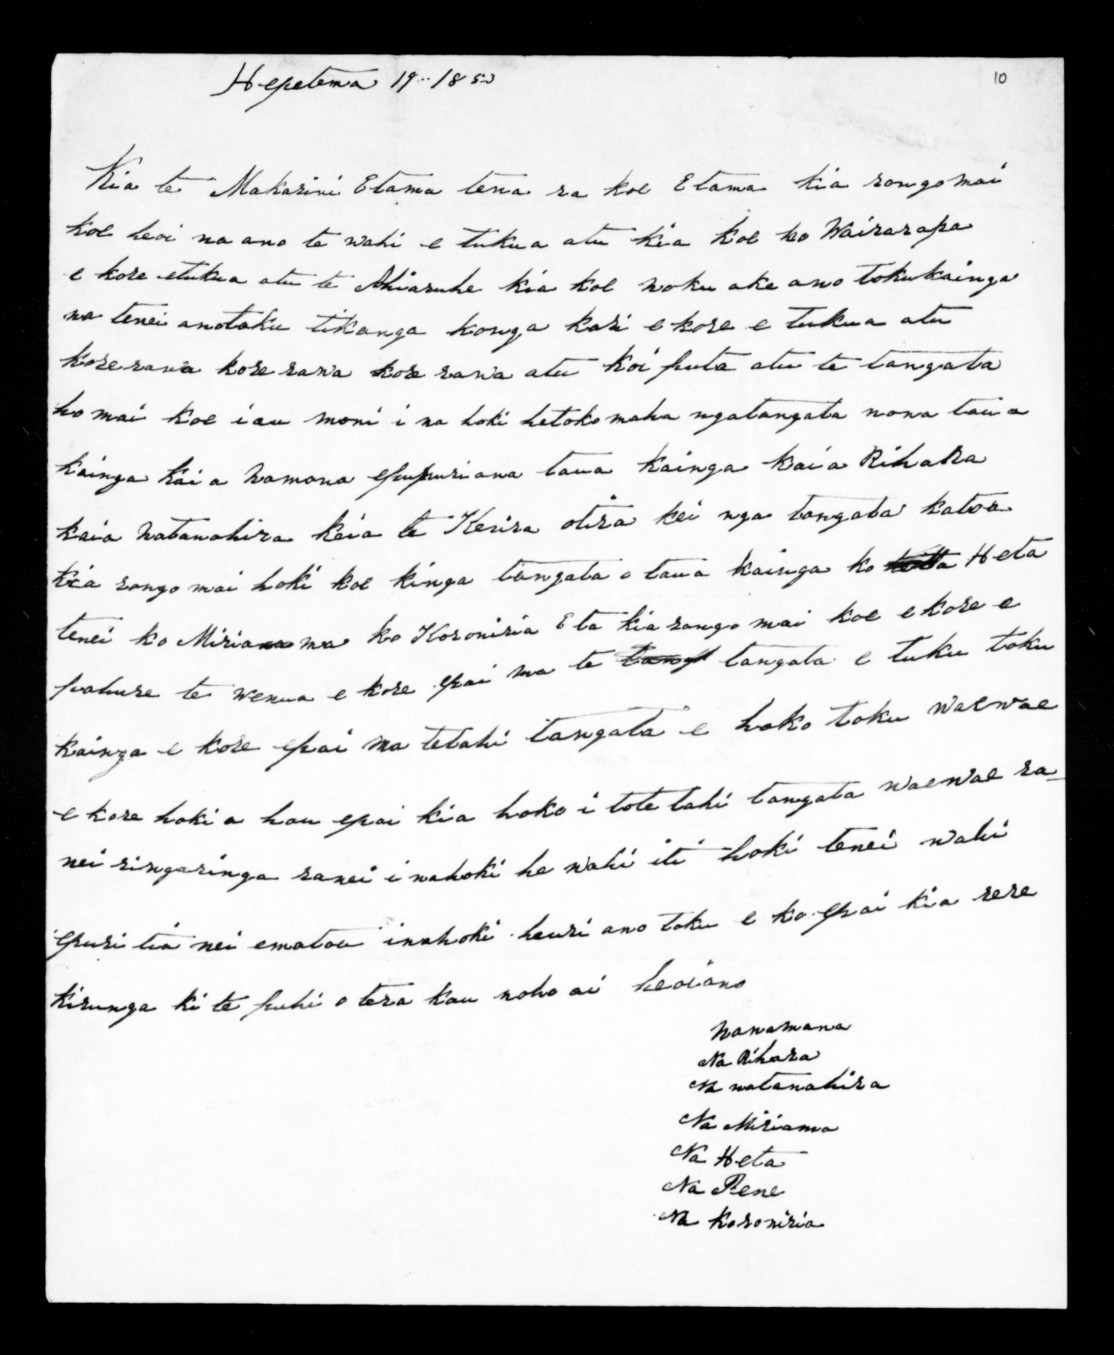 Hepetema 19 - 1850
10
Kia te Makarini Etama tena ra koe Etama kia rongo mai
koe heoi na ano te wahi e tukua atu kia koe ko Wairarapa
e kore etukua atu te Ahiaruhe kia koe noku ake ano tokukainga
na tenei anotaku tikanga konga kari e kore e tukua atu
korerawa kore rawa kore rawa atu koi puta atu te tangata
ho mai koe i au moni i na hoki hetokomaha ngatangata nona taua
kainga kai a Namana epupuriana taua kainga kaia Rihara
kaia Natanahira kaia te Kerira otira kei nga tangata katoa
kia rongo mai hoki koe kinga tangata o taua kainga ko Heta
tenei ko Miriama ko Koroniria Eta kia rongo mai koe e kore e
pahure te wenua e kore epai ma te tangata e tuku toku
kainga e kore epai ma tetahi tangata e hoko toku waewae
e kore hoki a hau epai kia hoko i tote tahi tangata waewae ra-
nei ringaringa ranei i nahoki he wahi iti hoki tenei wahi
epuri tia nei ematou inahoki heuri ano toku e ko epai kia rere
kirunga ki te puhi o tera kau noho ai heoiano
Nanamana
Na Rihara
Na natanahira
Na Miriama
Na Heta
Na Rene
Na Koroniria